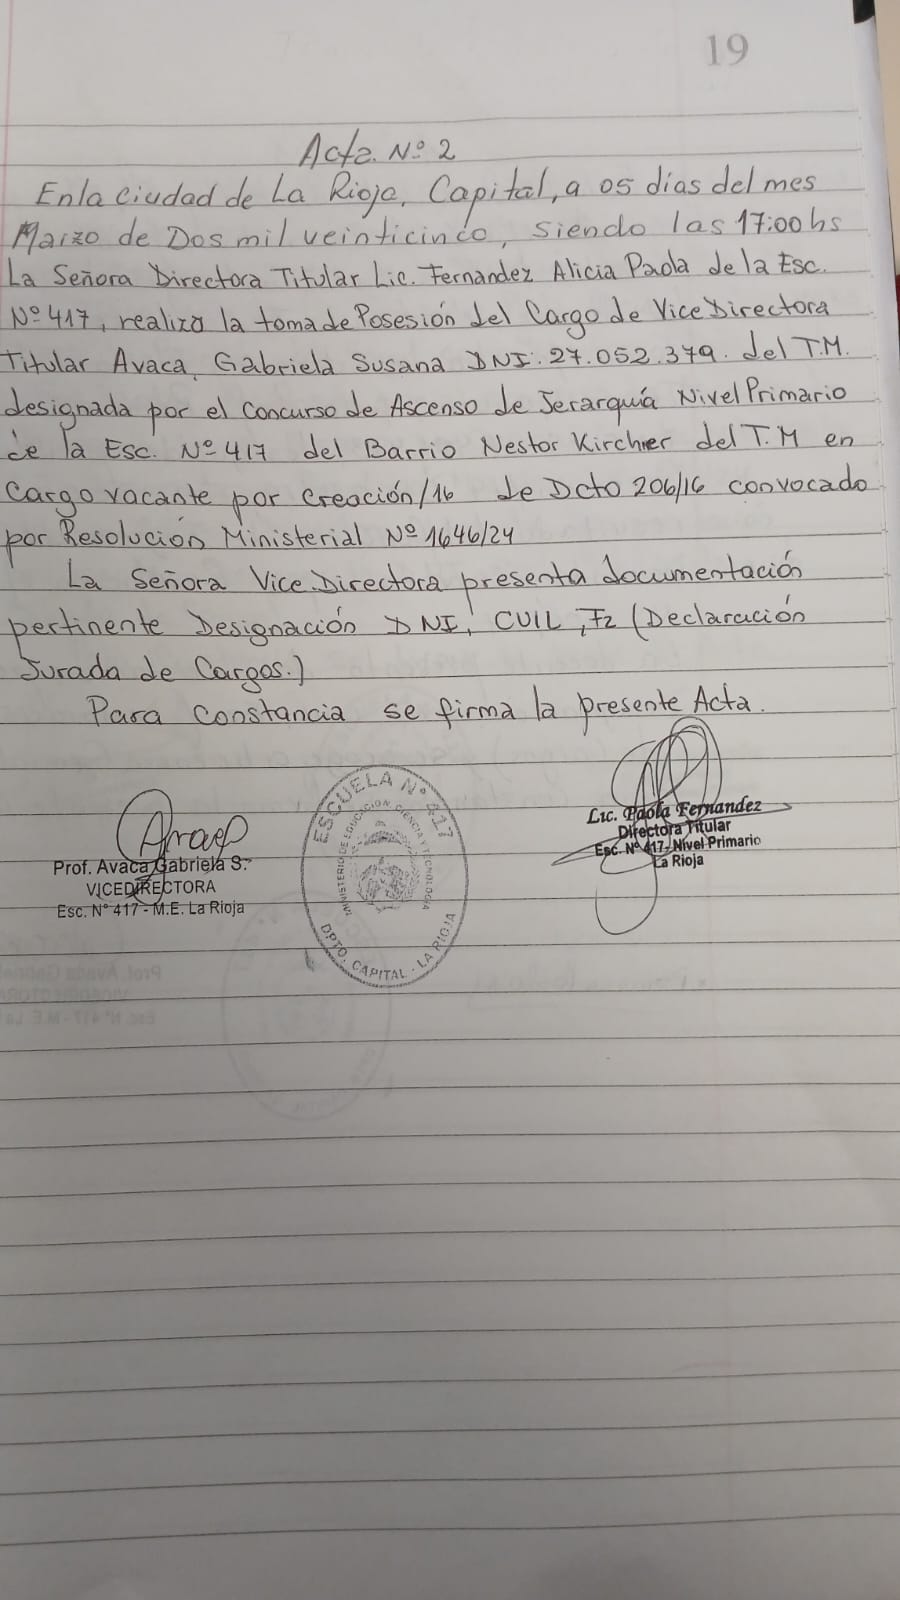 19
Acta. Nº 2
En la ciudad de La Rioja, Capital, a 05 días del mes
Marzo de Dos mil veinticinco, siendo las 17:00 hs
La Señora Directora Titular Lic. Fernandez Alicia Paola de la Esc.
Nº 417, realizo la toma de Posesión del Cargo de Vice Directora
Titular Avaca, Gabriela Susana DNI. 27.052.379. del T.M.
designada por el Concurso de Ascenso de Jerarquía Nivel Primario
de la Esc. Nº 417 del Barrio Nestor Kirchner del T.M en
Cargo vacante por Creación/16 de Dcto 206/16 convocado
por Resolución Ministerial Nº 1646/24
La Señora Vice Directora presenta documentación
pertinente Designación DNI, CUIL, F2 (Declaración
Jurada de Cargos.)
Para Constancia se firma la presente Acta.
Prof. Avaca Gabriela S.
VICEDIRECTORA
Esc. N° 417 - M.E. La Rioja
ESCUELA N° 417
MINISTERIO DE EDUCACION, CIENCIA Y TECNOLOGIA
DPTO. CAPITAL - LA RIOJA
Lic. Paola Fernandez
Directora Titular
Esc. Nº 417- Nivel Primario
La Rioja